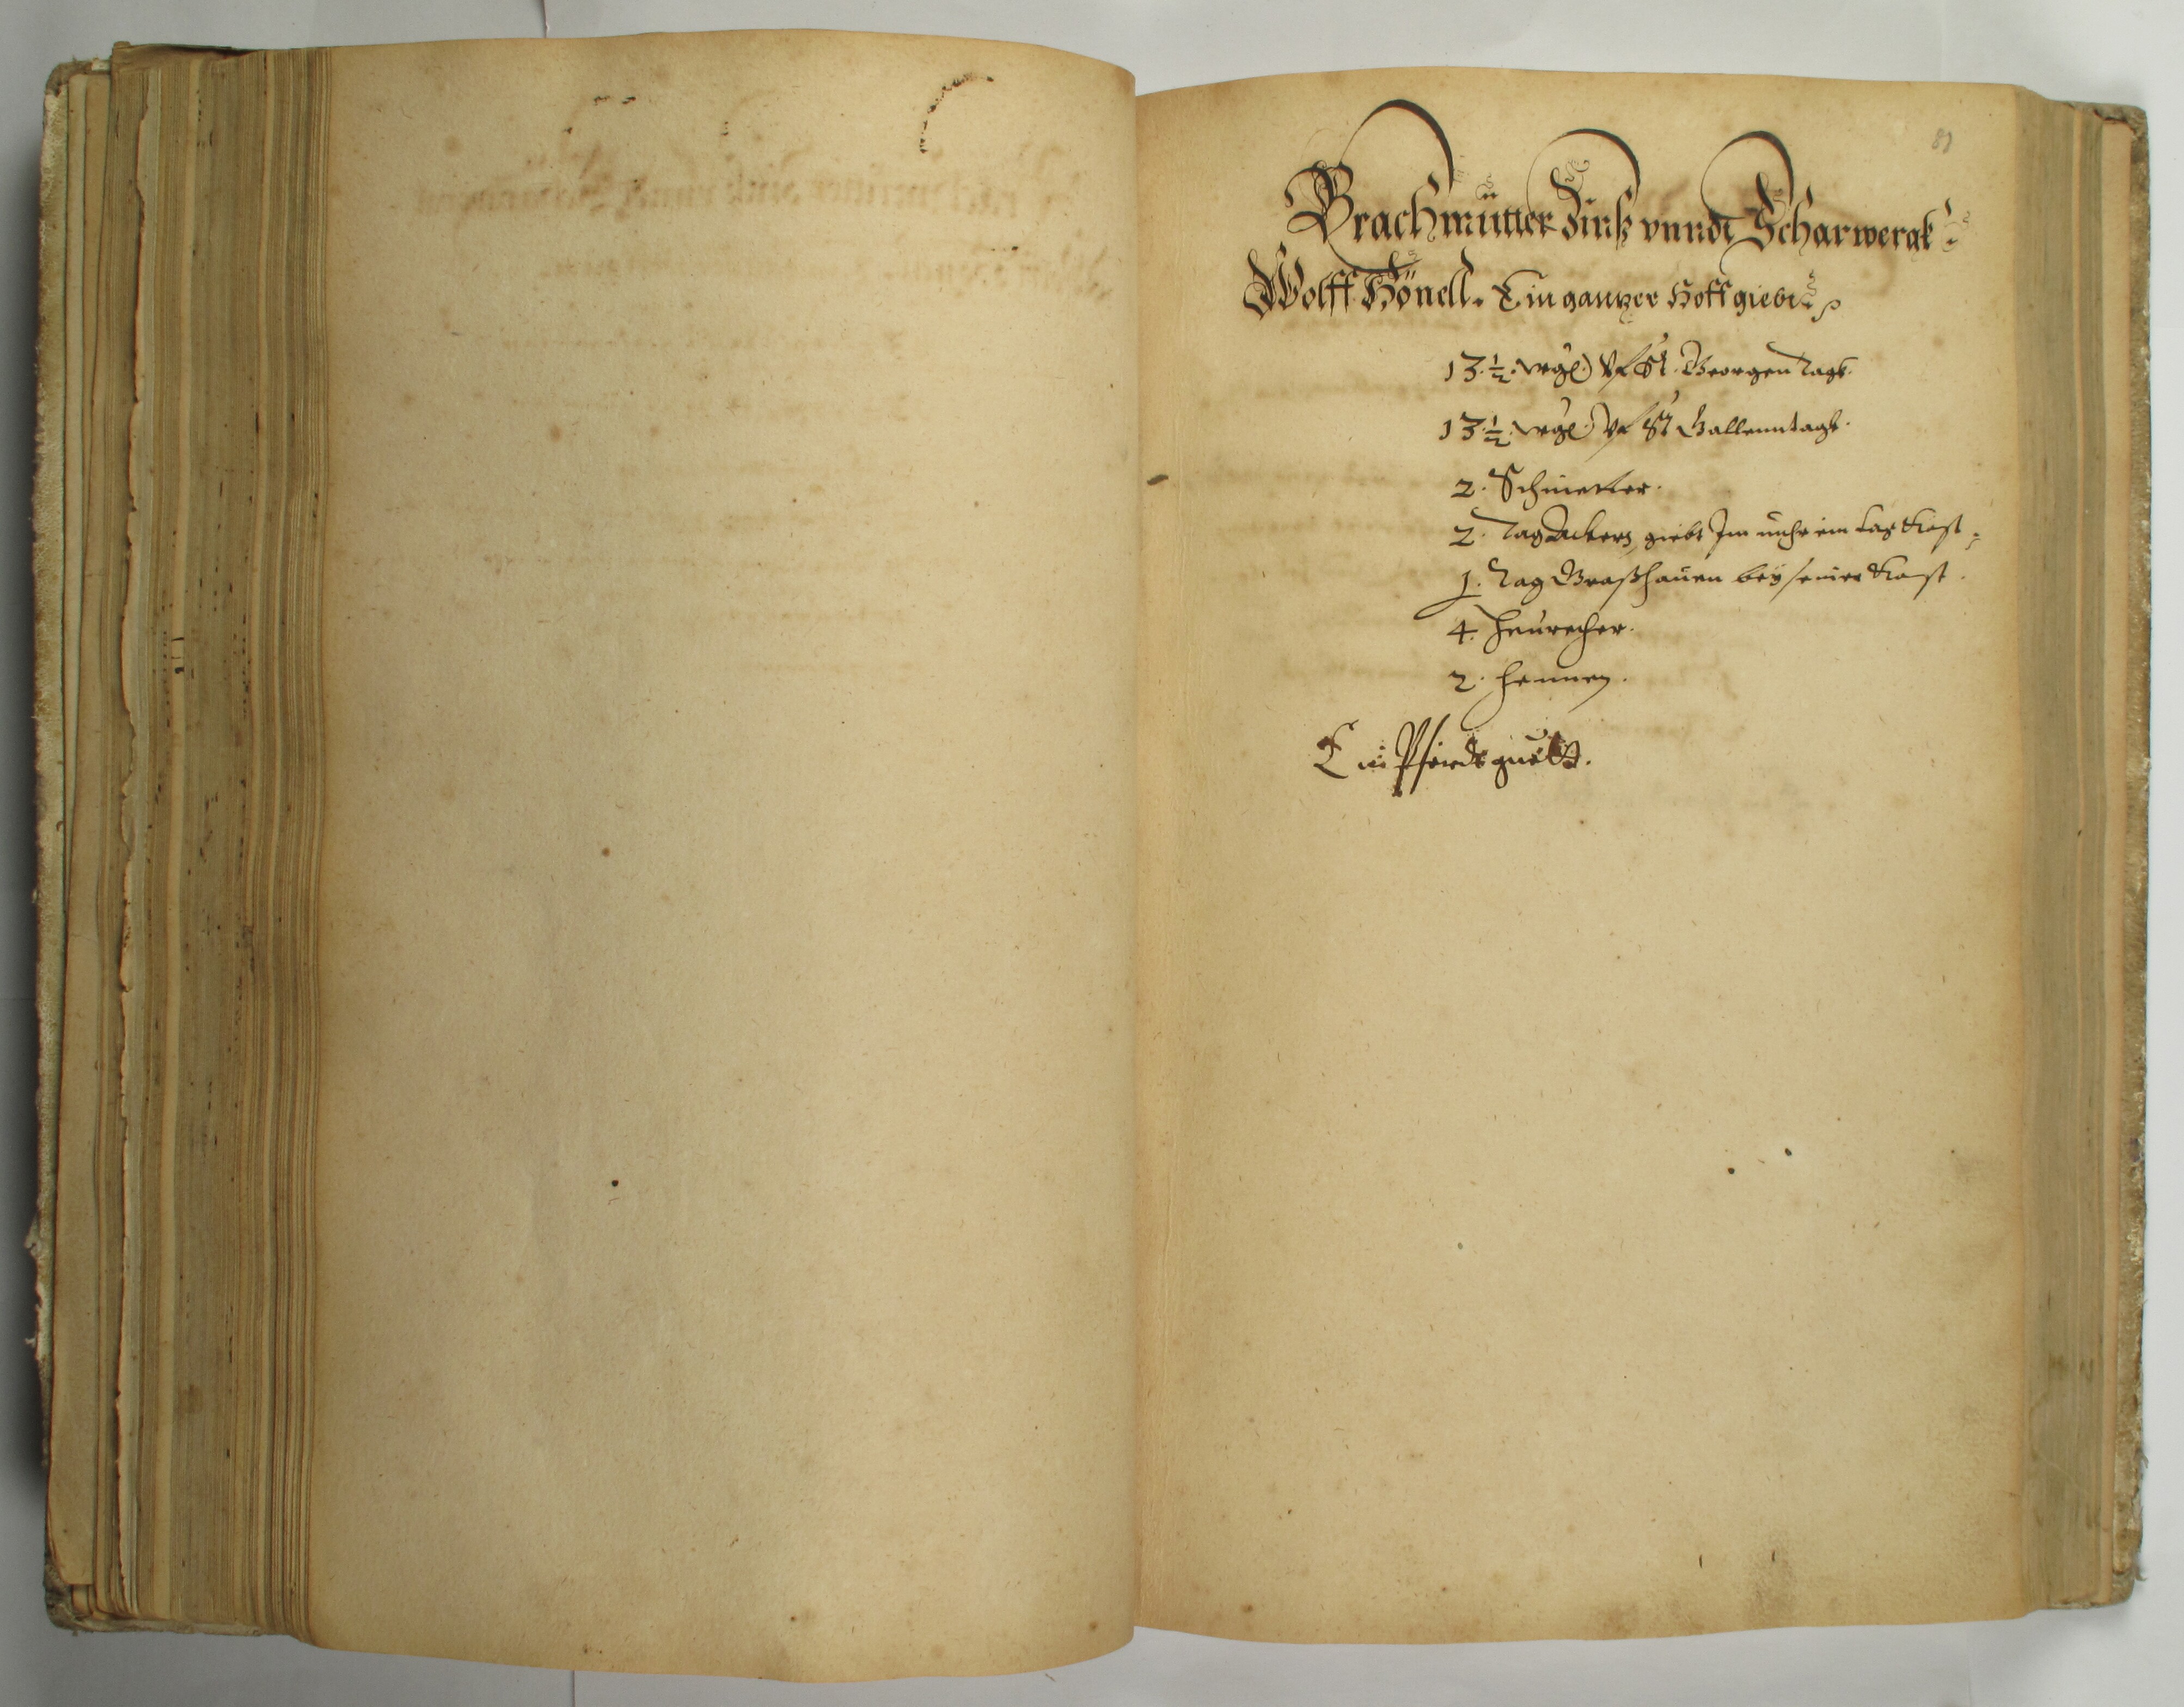 81
Brachmütter Zinß vnndt Scharwergk
Wolff Hönell. Ein gantzer Hoff giebt
13 ½. wgl. vf St. Georgen Tagk.
13 ½. wgl. vf St Gallenntagk.
2. Schnietter.
2. Tag Ackern, giebt Im nichr ein tag Kost
1. Tag Graßhauen bey seiner Kost.
4. heurecher.
2. hennen.
Ein Pferdt